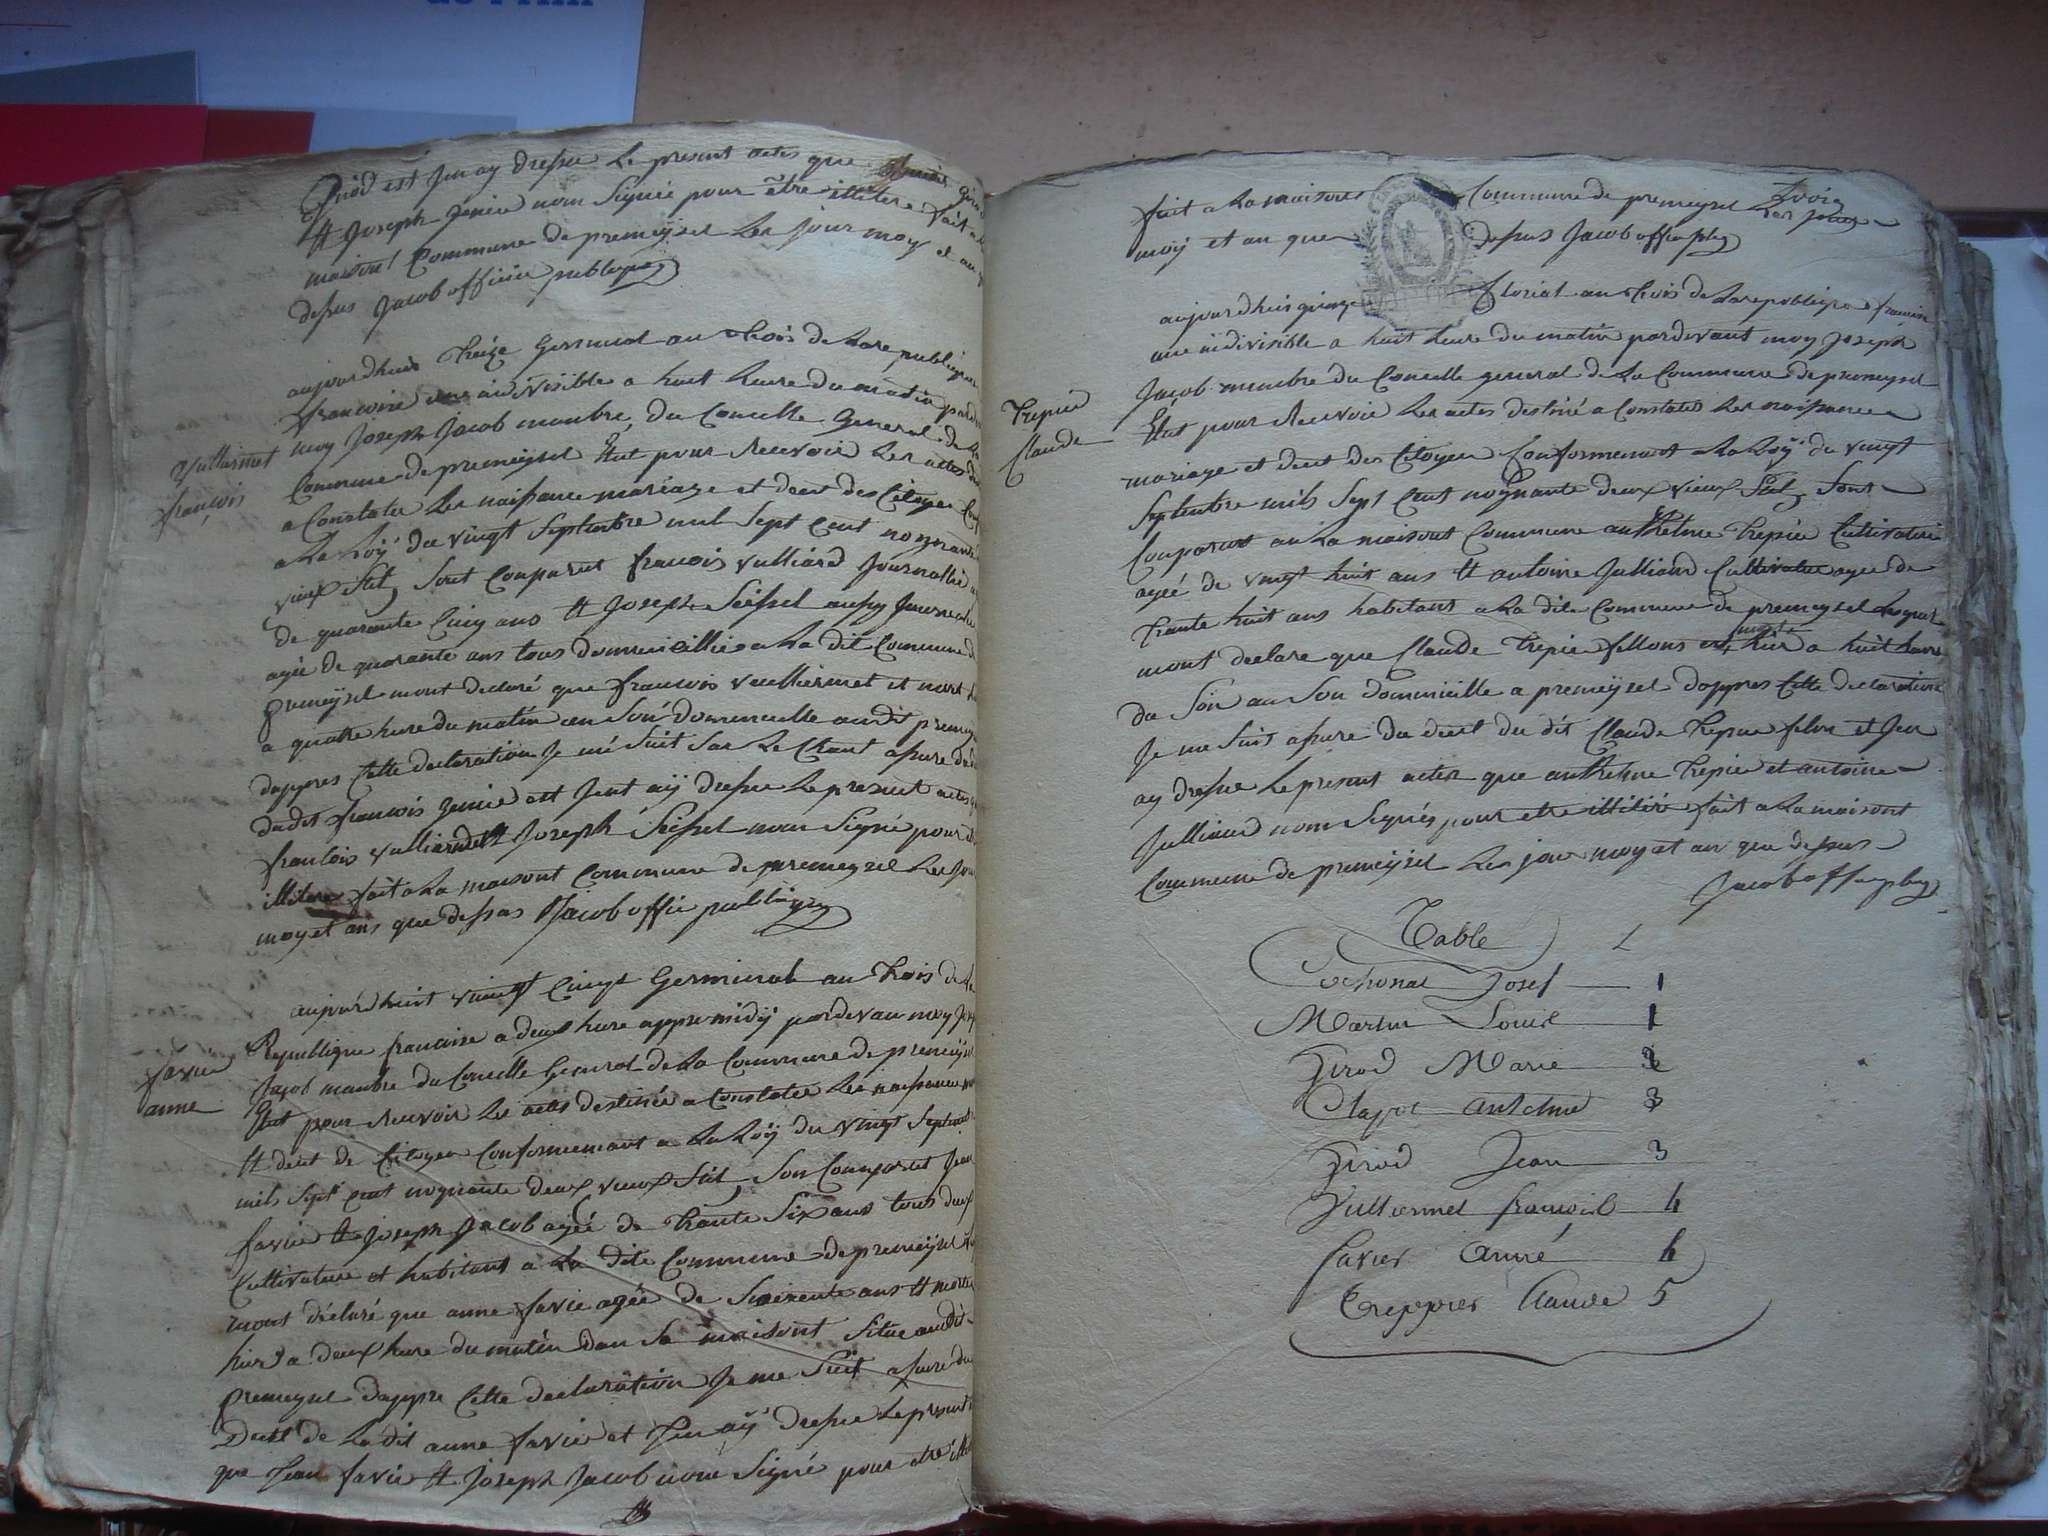 Girod est Jen ay dressé Le present actes que
tt Joseph Genie nom Signée pour être illitere fait a
maisont Commune de premeÿsel Les Jour moy et an
desus Jacob officiée publique
aujourdhuis Treize Germinal an Trois de La republique
francoise une indivisible a huit heure du matin pardevan
moy Joseph Jacob manbre du Concille General de La
Vulliermet
françois
Commune de premeÿsel Elut pour recevoir Les actes des
a Constater Les naissance mariage et deces des Citoyen Conf
a La Loÿ du vingt Septenbre mil Sept Cent noynante
vieux Stil, Sont Conparut francois vulliard Journallié
de quarante Cinq ans tt Joseph Seissel aussy Journalie
agée de quarante ans tous domicillies a La dit Commune de
premeÿsel mont declaré que francois Vulliermet et mort
a quatre hure du matin en Son domicille audit premeysel
dappres Cette declaration Je mé Suit Sur Le Chant assure du
dudit francois genie ett Jent aÿ dresse Le present actes
francois vulliard tt Joseph Seissel nom Signé pour
illitere fait a La maisont Commune de premeysel Les Jour
moy et ans que dessas Jacob officie publique
aujourdhuit vaingt Cinq Germinal an Trois de La
Republique francaise a deux hure appre midÿ pardevan moy
favier
anne
Jacob manbre du Concille General de La Commune de premeÿsel
Elut pour recevoir Les actes destinée a Constater Les naissance
tt decet de Citoyen Conformemant a La Loÿ du vingt Septenb
mils Sept Cent noynante deux vieux Stil, Son Comparut Jean
favier tt Joseph Jacob ageé de Trante Six ans tous deux
Cultivature et habitant a La dite Commune de premeÿsel
mont déclaré que anne favie agée de Soixente ans tt morte
hier a deux hure du matin dan Sa maisont Situe audit
premeysel dappre Cette declaration Je me Suit assure du
Decet de La dit anne favie et Jen aÿ dresse Le present
que Jean favie tt Joseph Jacob nom Signé pour etre
fait a La maisont Commune de premeysel Les jour
moÿ et an que desus Jacob offic plq
aujourdhuis quinze Floréal an Trois de La republique francoise
une indivisible a huit heure du matin pardevant moy Joseph
Jacob menbre du Concille general de La Commune de premeysel
Trepie
Claude
Elut pour Recevoir Les actes destiné a Constates Les naissance
mariage et decet des Citoyen Conformemant a La Loÿ du vingt
Septenbre mils Sept Cent noynante deux vieux Stil, Sont
Conparut an La maisont Commune anthelme Trepié Cultivature
agée de vingt huit ans tt antoine Julliand Cultivatre agée de
trante huit ans habitant a La dite Commune de premeysel Lesquel
mont declare que Claude Trepie fellons est morte hier a huit heure
du Soir an Son domicille a premeysel dappres Cette declaration
Je me Suit assure du decet du dit Claude Trepie felon et Jen
ay dresse Le present actes que anthelme Trepie et antoine
Julliand nom Signés pour etre illitéré fait a La maisont
Commune de premeÿsel Les jour moy et an que dessus
Jacob offic plq
Table
Cochonat Josef 1
Martin Louise 1
Girod Marie 2
Clapot Antelme 3
Girod Jean 3
Vulliermet francoise 4
Favier Anne 4
Treppier Claude 5